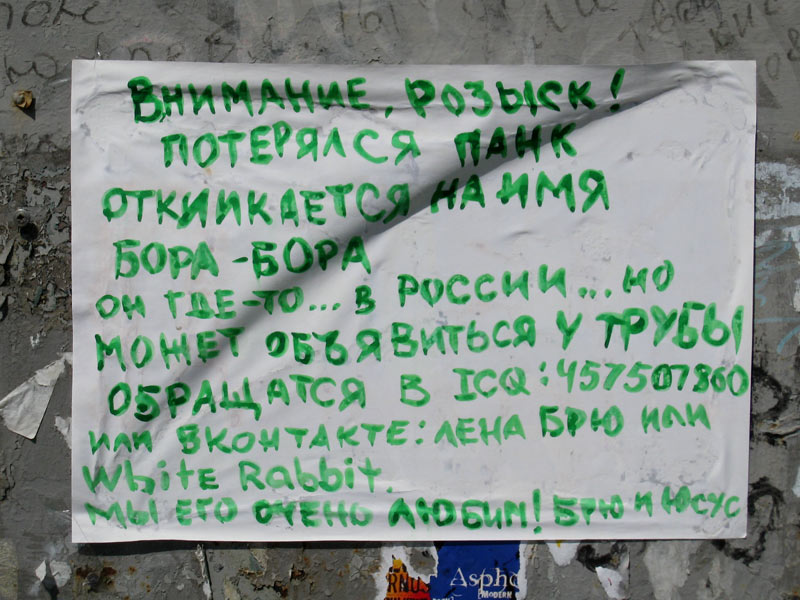 ВНИМАНИЕ, РОЗЫСК!
ПОТЕРЯЛСЯ ПАНК
ОТКИИКАЕТСЯ НА ИМЯ
БОРА-БОРА
ОН ГДЕ-ТО... В РОССИИ... НО
МОЖЕТ ОБЪЯВИТЬСЯ У ТРУБЫ
ОБРАЩАТСЯ В ICQ: 457507860
ИЛИ ВКОНТАКТЕ: ЛЕНА БРЮ ИЛИ
White Rabbit.
МЫ ЕГО ОЧЕНЬ ЛЮБИМ! БРЮ И ЮСУС
Aspho
MODERN